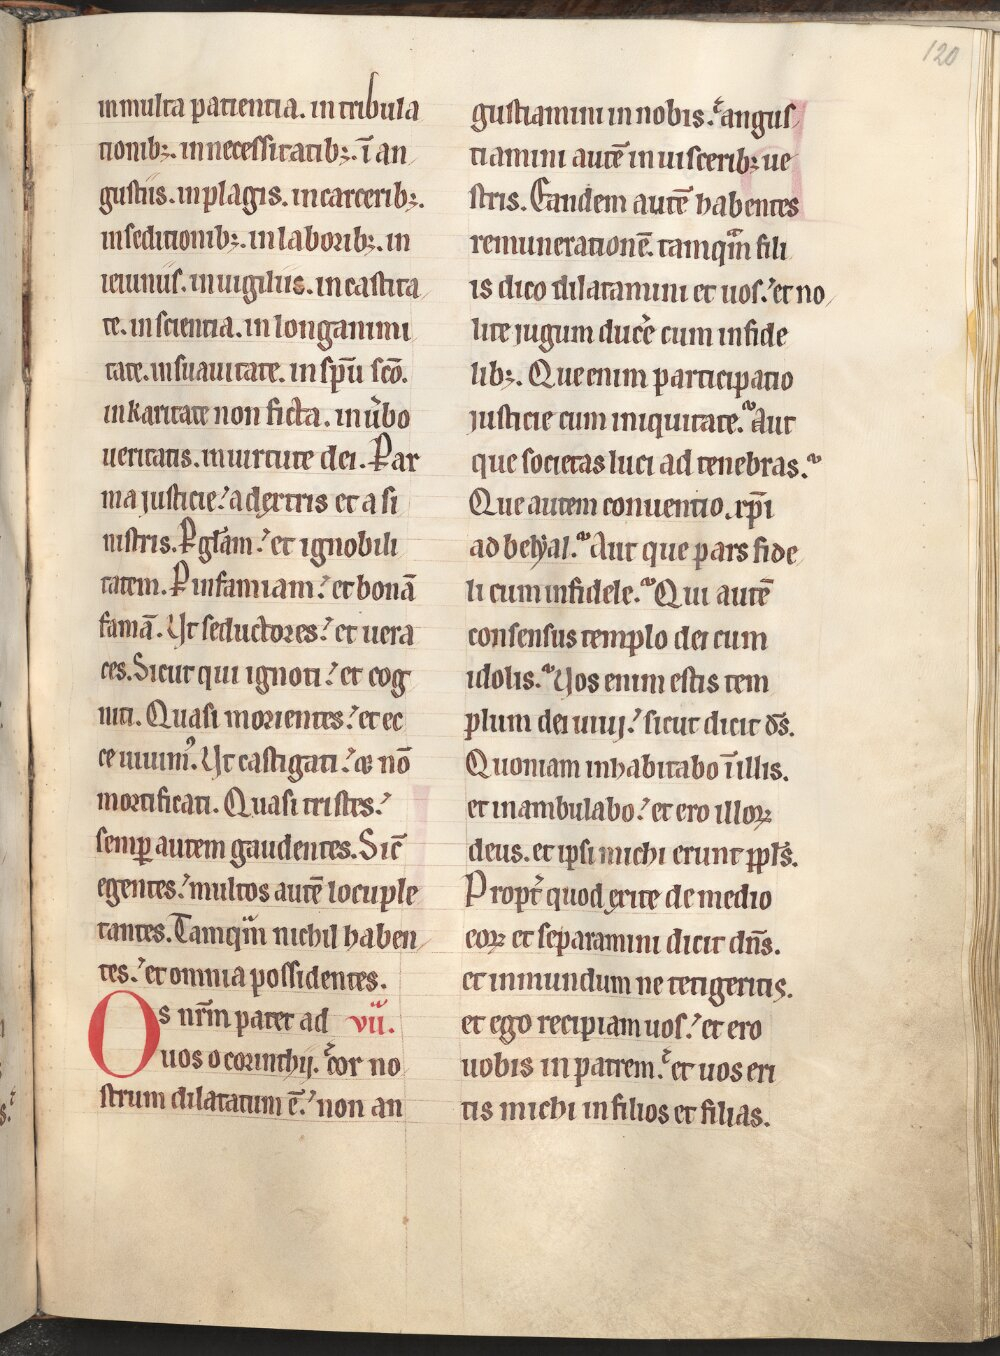 120
in multa patientia. in tribula
tionibꝫ. in necessitatibꝫ. ī an
gustiis. in plagis. in carceribꝫ.
in seditionibꝫ. in laboribꝫ. in
ieiuniis. in uigiliis. in castita
te. in scientia. in longanimi
tate. in suauitate. in sp̄u sc̄o.
in karitate non ficta. in u̓bo
ueritatis. in uirtute dei. P̲ ar
ma justicie. a dextris et a si
nistris. P̲ gl̄am. et ignobili
tatem. P̲ infamiam. et bonā
famā. Ut seductores. et uera
ces. Sicut qui ignoti. et cog
niti. Quasi morientes. et ec
ce uiuimꝰ. Ut castigati. ⁊ nō
mortificati. Quasi tristes.
semꝑ autem gaudentes. Sic̄
egentes. multos autē locuple
tantes. Tamqͣm nichil haben
tes. et omnia possidentes.
Os nr̄m patet ad vii.
uos o corinthij. cor no
strum dilatatum ē. non an
gustiamini in nobis. angus
tiamini autē in uisceribꝫ ue
stris. Eandem autē habentes
remunerationē. tamqͣm fili
is dico dilatamini et uos. et no
lite jugum duc̓e cum infide
libꝫ. Que enim participatio
justicie cum iniquitate. Aut
que societas luci ad tenebras.
Que autem conuentio. xp̄i
ad belyal. Aut que pars fide
li cum infidele. Qui autē
consensus templo dei cum
idolis. Vos enim estis tem
plum dei uiui. sicut dicit ds̄.
Quoniam inhabitabo ī illis.
et inambulabo. et ero illoꝝ
deus. et ipsi michi erunt ppl̄s.
Propt̓ quod exite de medio
eoꝝ et separamini dicit dn̄s.
et inmundum ne tetigeritis.
et ego recipiam uos. et ero
uobis in patrem. et uos eri
tis michi in filios et filias.